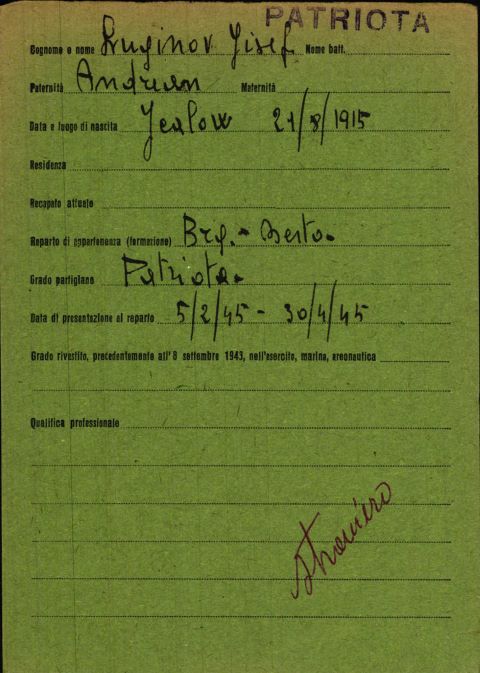 PATRIOTA
Cognome e nome Luginov Jisef Nome batt.
Paternità Andrean Maternità
Data e luogo di nascita Jealow 21/8/1915
Residenza
Recapato attuale
Reparto di appartenenza (formazione) Brg. - Berto.
Grado partigiano Patriota.
Data di presentazione al reparto 5/2/45 - 30/4/45
Grado rivestito, precedentemente all'8 settembre 1943, nell'esercito, marina, areonautica
Qualifica professionale
straniero